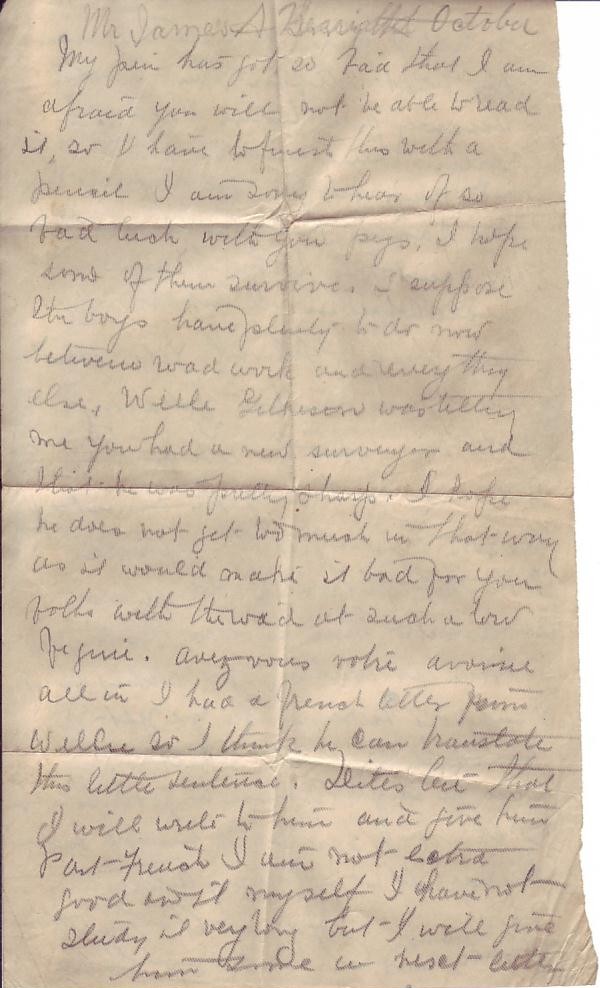 Mr James A October
My pen has got so bad that I am
afraid you will not be able to read
it, so I have to finish this with a
pencil I am sorry to hear of so
bad luck with your pigs, I hope
some of them survive. I suppose
the boys have plenty to do now
between road work and everything
else, Willie Gilkeson was telling
me you had a new surveyor and
that he was pretty sharp. I hope
he does not get too much in that way
as it would make it bad for you
folks with the road at such a low
figure. avez vous votre avoine
all in I had a french letter from
Willie so I think he can translate
this little sentence. Dites lui that
I will write to him and give him
Part French I am not extra
good on it myself I have not
study it very long but I will give
him some in next letter